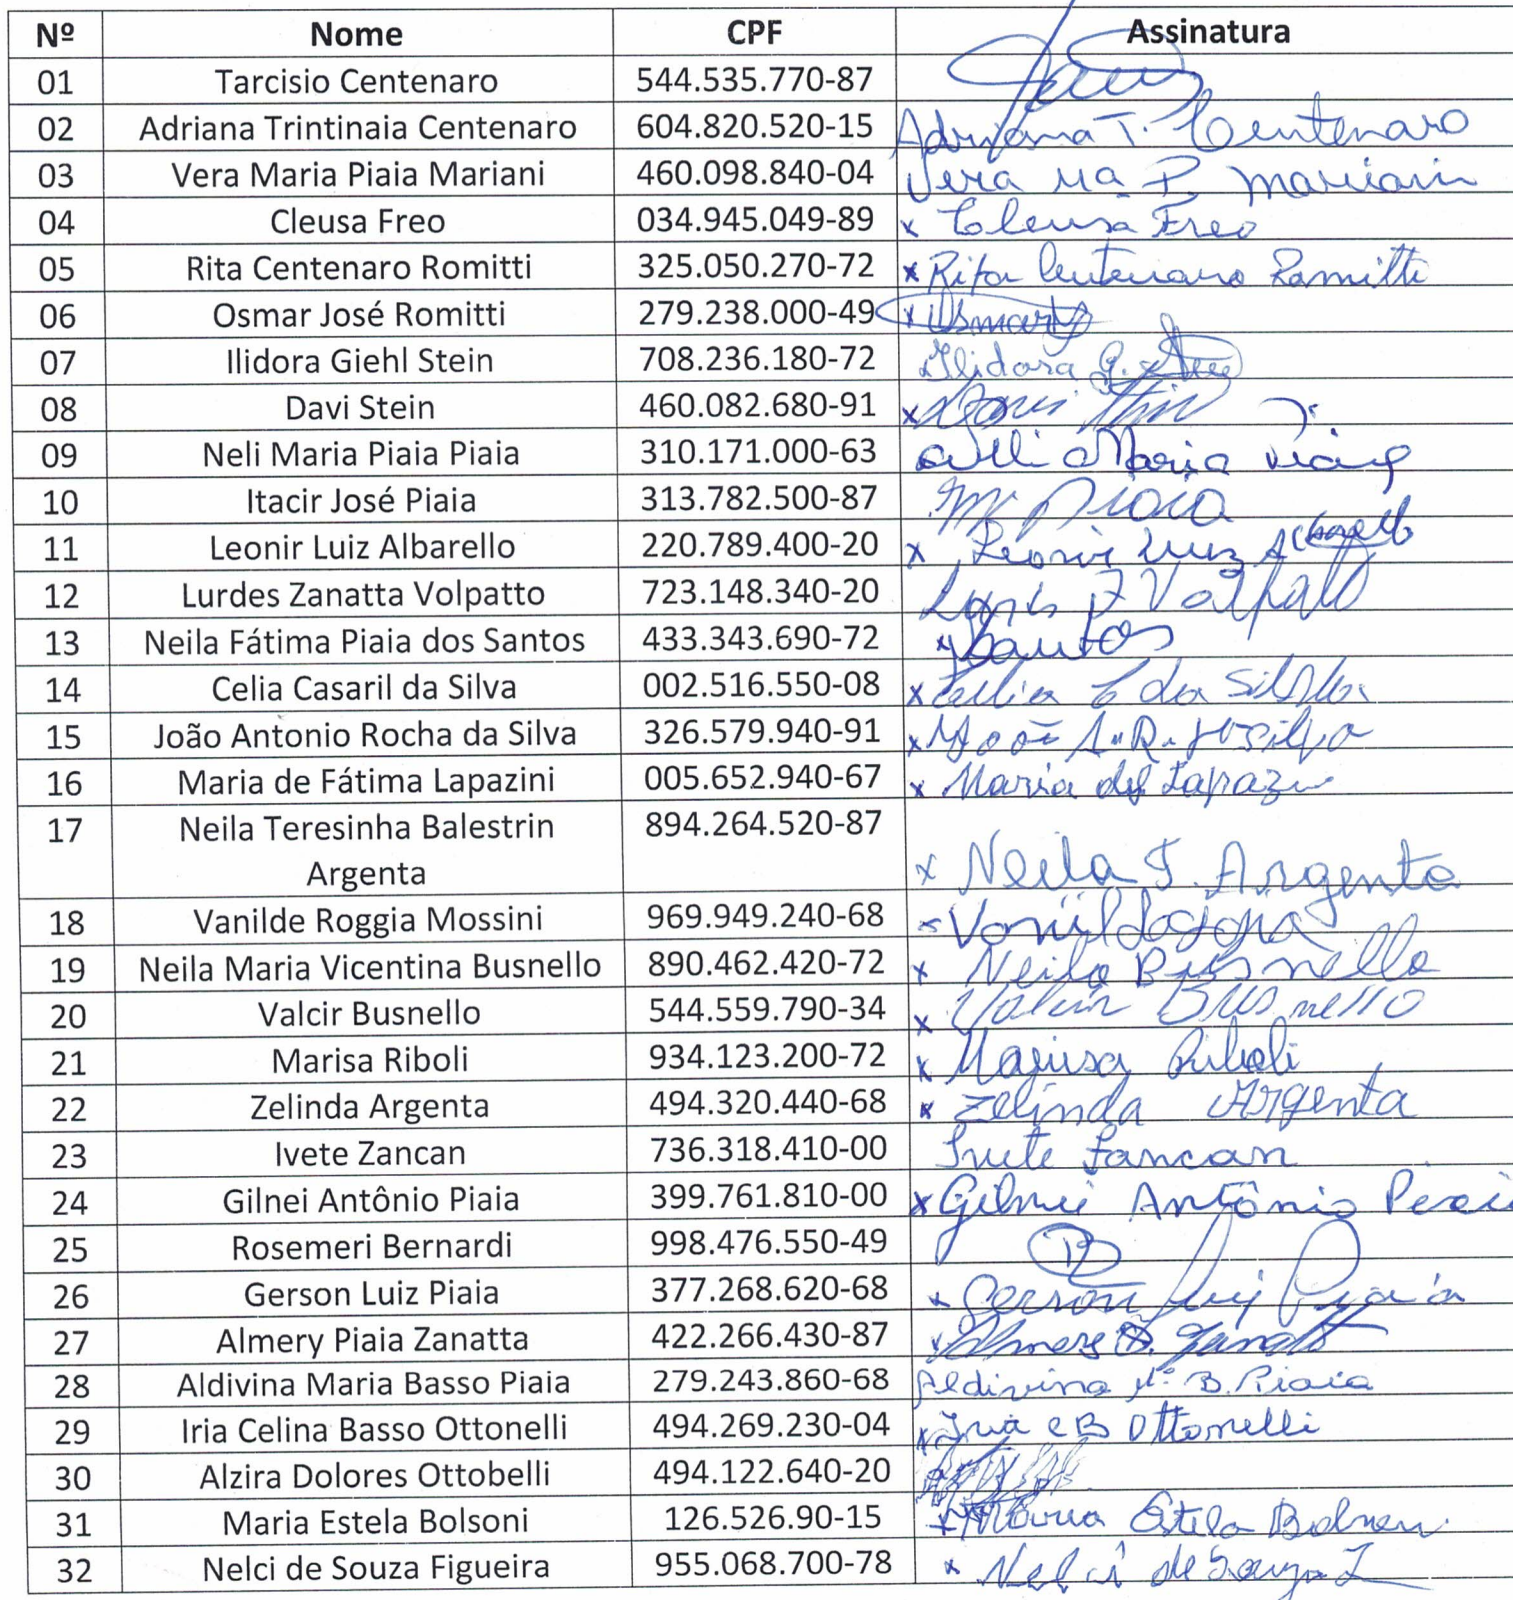 Nº Nome CPF Assinatura
01 Tarcisio Centenaro 544.535.770-87
02 Adriana Trintinaia Centenaro 604.820.520-15 Adriana T. Centenaro
03 Vera Maria Piaia Mariani 460.098.840-04 Vera Mª P. Mariani
04 Cleusa Freo 034.945.049-89 x Cleusa Freo
05 Rita Centenaro Romitti 325.050.270-72 x Rita Centenaro Romitti
06 Osmar José Romitti 279.238.000-49 x Osmar
07 Ilidora Giehl Stein 708.236.180-72 Ilidora G. Stein
08 Davi Stein 460.082.680-91 x Davi Stein
09 Neli Maria Piaia Piaia 310.171.000-63 Neli Maria Piaia
10 Itacir José Piaia 313.782.500-87 Piaia
11 Leonir Luiz Albarello 220.789.400-20 x Leonir Luiz Albarello
12 Lurdes Zanatta Volpatto 723.148.340-20 Lurdes Z Volpatto
13 Neila Fátima Piaia dos Santos 433.343.690-72 x Santos
14 Celia Casaril da Silva 002.516.550-08 x Celia C da Silva
15 João Antonio Rocha da Silva 326.579.940-91 x João A. R. da Silva
16 Maria de Fátima Lapazini 005.652.940-67 x Maria de F Lapazini
17 Neila Teresinha Balestrin 894.264.520-87
Argenta x Neila T. Argenta
18 Vanilde Roggia Mossini 969.949.240-68
19 Neila Maria Vicentina Busnello 890.462.420-72 x Neila Busnello
20 Valcir Busnello 544.559.790-34 x Valcir Busnello
21 Marisa Riboli 934.123.200-72 x Marisa Riboli
22 Zelinda Argenta 494.320.440-68 x Zelinda Argenta
23 Ivete Zancan 736.318.410-00 Ivete Zancan
24 Gilnei Antônio Piaia 399.761.810-00 x Gilnei Antônio Piaia
25 Rosemeri Bernardi 998.476.550-49
26 Gerson Luiz Piaia 377.268.620-68 x Gerson Luiz Piaia
27 Almery Piaia Zanatta 422.266.430-87 x Almery P. Zanatta
28 Aldivina Maria Basso Piaia 279.243.860-68 Aldivina Mª B. Piaia
29 Iria Celina Basso Ottonelli 494.269.230-04 x Iria C B Ottonelli
30 Alzira Dolores Ottobelli 494.122.640-20
31 Maria Estela Bolsoni 126.526.90-15 x Maria Estela Bolsoni
32 Nelci de Souza Figueira 955.068.700-78 x Nelci de Souza F